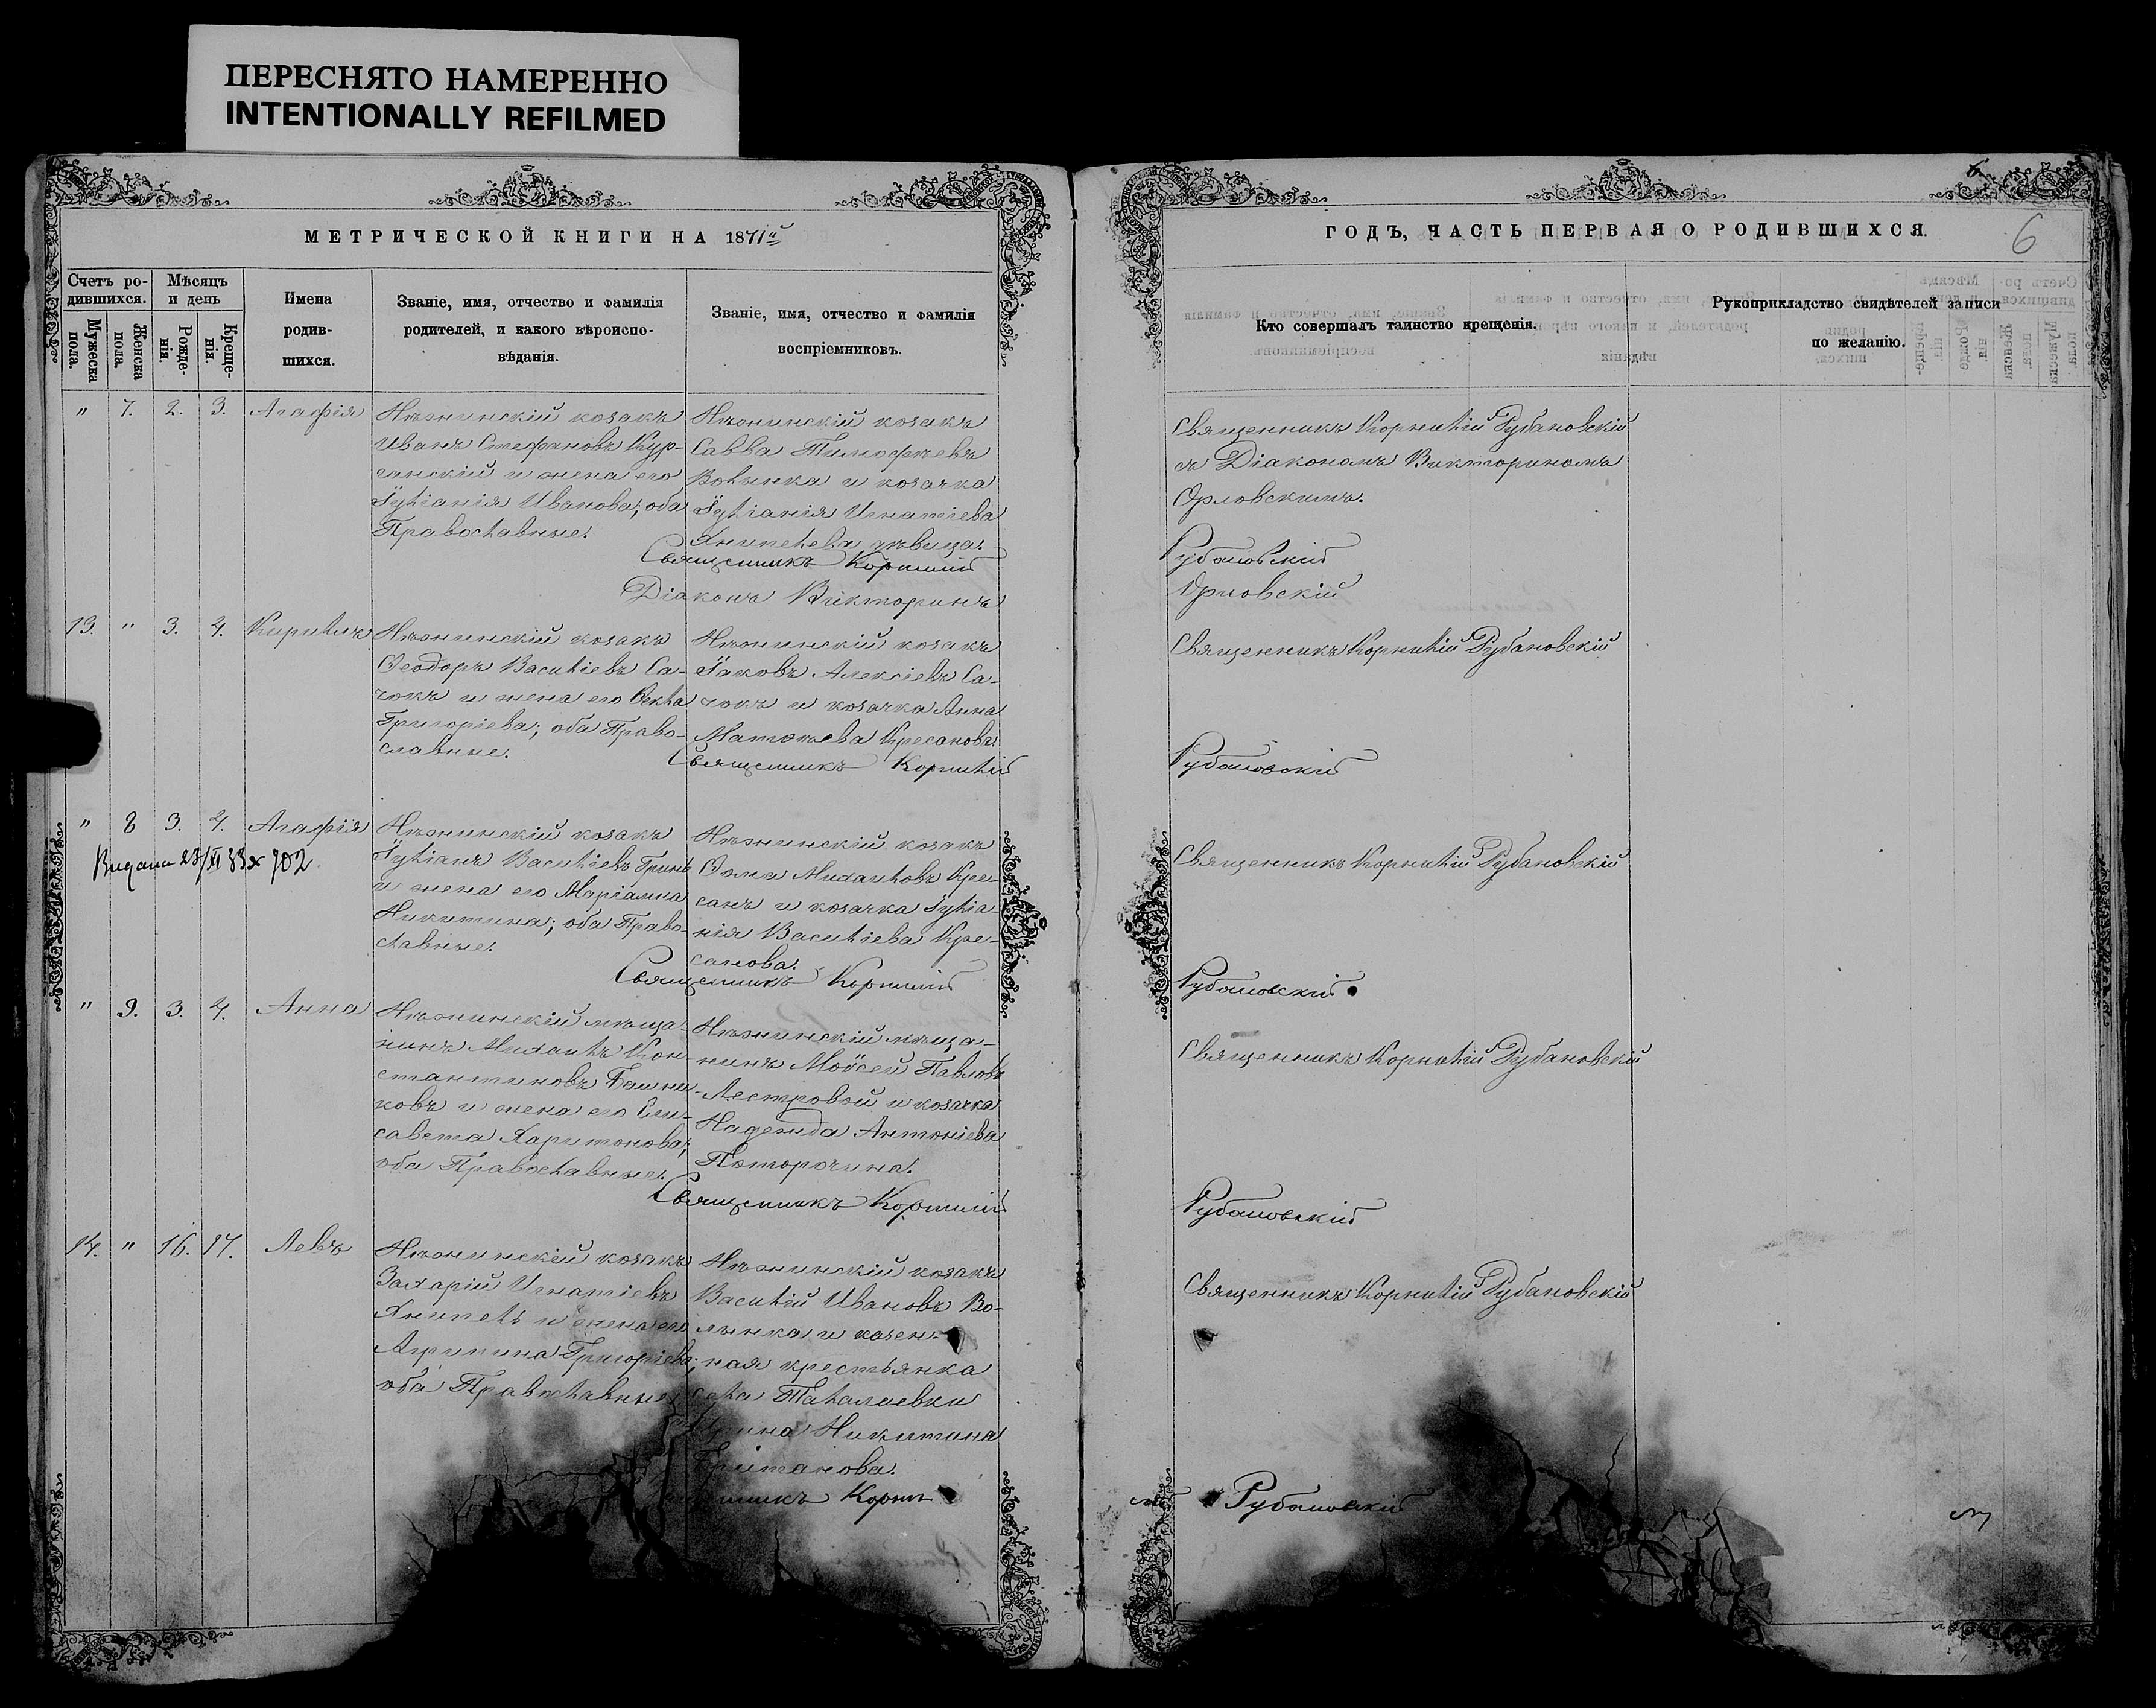 ПЕРЕСНЯТО НАМЕРЕННО
INTENTIONALLY REFILMED
МЕТРИЧЕСКОЙ КНИГИ НА 1871й
Счетъ ро-
дившихся.
Мужеска
пола.
Женска
пола.
Мѣсяцъ
и день
Рожде-
нія.
Креще-
нія.
Имена
родив-
шихся.
Званіе, имя, отчество и фамилія
родителей, и какого вѣроиспо-
вѣданія.
Званіе, имя, отчество и фамилія
воспріемниковъ.
" 7. 2. 3. Агафія
Нѣжинскій козакъ
Иванъ Стефановъ Кур-
ганскій и жена его
Іуліанія Иванова; оба
Православные.
Нѣжинскій козакъ
Савва Тимофѣевъ
Волынка и козачка
Іуліанія Игнатіева
Хнипелева дѣвица.
Священникъ Корнилій
Діаконъ Викторинъ
13. " 3. 4. Кирилъ
Нѣжинскій козакъ
Ѳеодоръ Василіевъ Са-
чокъ и жена его Ѳекла
Григоріева; оба Право-
славные.
Нѣжинскій козакъ
Іаковъ Алексіевъ Са-
чокъ и козачка Анна
Матѳѣева Кресанова.
Священникъ Корнилій
" 8 3. 4. Агафія
702
Нѣжинскій козакъ
Іуліанъ Василіевъ Гринь
и жена его Маріамна
Никитина; оба Право-
славные.
Нѣжинскій козакъ
Ѳома Михаиловъ Кре-
санъ и козачка Іуліа-
нія Василіева Кре-
санова.
Священникъ Корнилій
" 9. 3. 4. Анна
Нѣжинскій мѣща-
нинъ Михаилъ Кон-
стантиновъ
ковъ и жена его Ели-
савета Харитонова;
оба Православные.
Нѣжинскій мѣща-
нинъ Мойсей Павловъ
Лестровой и козачка
Надежда Антоніева
Поторочина.
Священникъ Корнилій
14. " 16. 17. Левъ
Нѣжинскій козакъ
Захарій Игнатіевъ
Хнипель и жена его
Агрипина Григоріева;
оба Православные
Нѣжинскій козакъ
Василій Ивановъ Во-
лынка и казен-
ная крестьянка
села Талалаевки
Никитина
ГОДЪ, ЧАСТЬ ПЕРВАЯ О РОДИВШИХСЯ.
6
Кто совершалъ таинство крещенія.
Рукоприкладство свидѣтелей записи
по желанію.
Священникъ Корнилій Рубановскій
съ Діакономъ Викториномъ
Орловскимъ.
Рубановскій
Орловскій
Священникъ Корнилій Рубановскій
Рубановскій
Священникъ Корнилій Рубановскій
Рубановскій
Священникъ Корнилій Рубановскій
Рубановскій
Священникъ Корнилій Рубановскій
Рубановскій